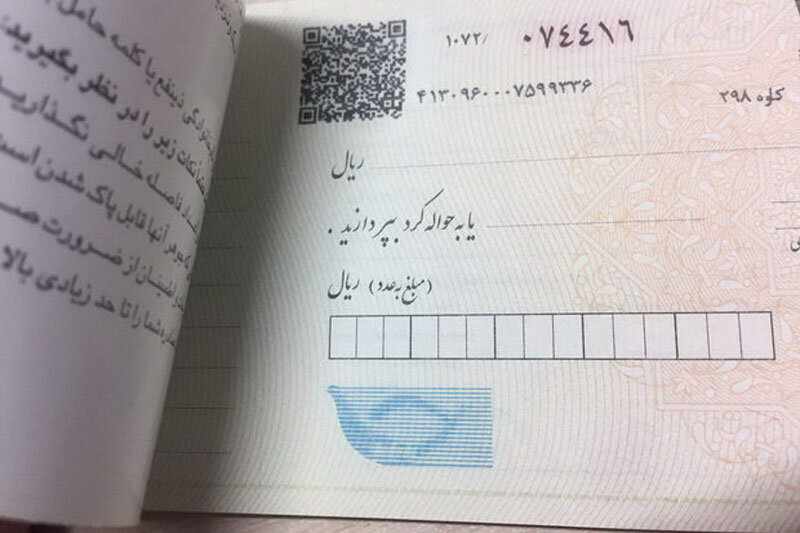 ۱۰۷۲/ ۰۷۴۴۱۶
۴۱۳۰۹۶۰۰۰۷۵۹۹۳۳۶
کاوه ۲۹۸
ریال
یا به حواله کرد بپردازید .
(مبلغ به عدد) ریال
ذینفع یا کلمه حامل
نکات زیر را در نظر بگیرید:
فاصله خالی نگذارید
که جوهر آنها قابل پاک شدن است
و اطمینان از ضرورت
شما را تا حد زیادی بالا